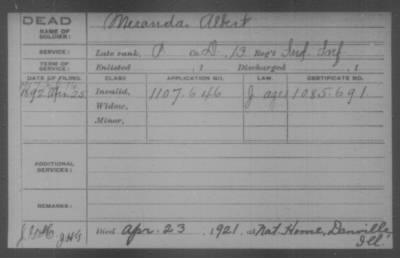 DEAD
NAME OF SOLDIER: Meranda, Albert
SERVICE: Late rank, P Co. D, 13 Reg't Ind. Inf.
TERM OF SERVICE: Enlisted , 1 Discharged , 1
DATE OF FILING. CLASS. APPLICATION NO. LAW. CERTIFICATE NO.
1892 Apr. 25 Invalid, 1107.646 J 1085.691
Widow,
Minor,
ADDITIONAL SERVICES:
REMARKS:
Died Apr. 23, 1921, at Nat. Home, Danville,
Ill.